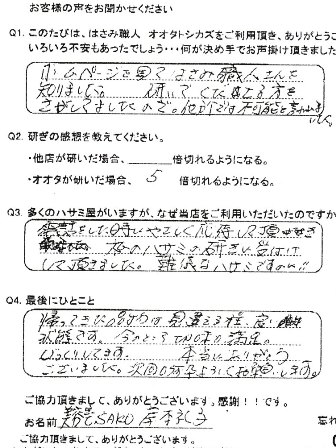 お客様の声をお聞かせください
Q1. このたびは、はさみ職人 オオタトシカズをご利用頂き、ありがとう
いろいろ不安もあったでしょう・・・何が決め手でお声掛け頂きました
ホームページで見て はさみ職人さんを
知りました 研いでくださる方を
さがしてましたので。他店では不可能と
Q2. 研ぎの感想を教えてください。
・他店が研いだ場合、 倍切れるようになる。
・オオタが研いだ場合、 5 倍切れるようになる。
Q3. 多くのハサミ屋がいますが、なぜ当店をご利用いただいたのですか
電話をした時にやさしく応待して頂
ハサミの研ぎ
して頂きました。 難儀なハサミですのに!!
Q4. 最後にひとこと
帰ってきた時は見違える程
状態です。 今のところ切味も満足。
びっくりしてます。 本当にありがとう
ございました。次回も何卒よろしくお願いします。
ご協力頂きまして、ありがとうございます。感謝!!です。
お名前 SAKU
ご協力頂きまして、ありがとうございます。
忘れ